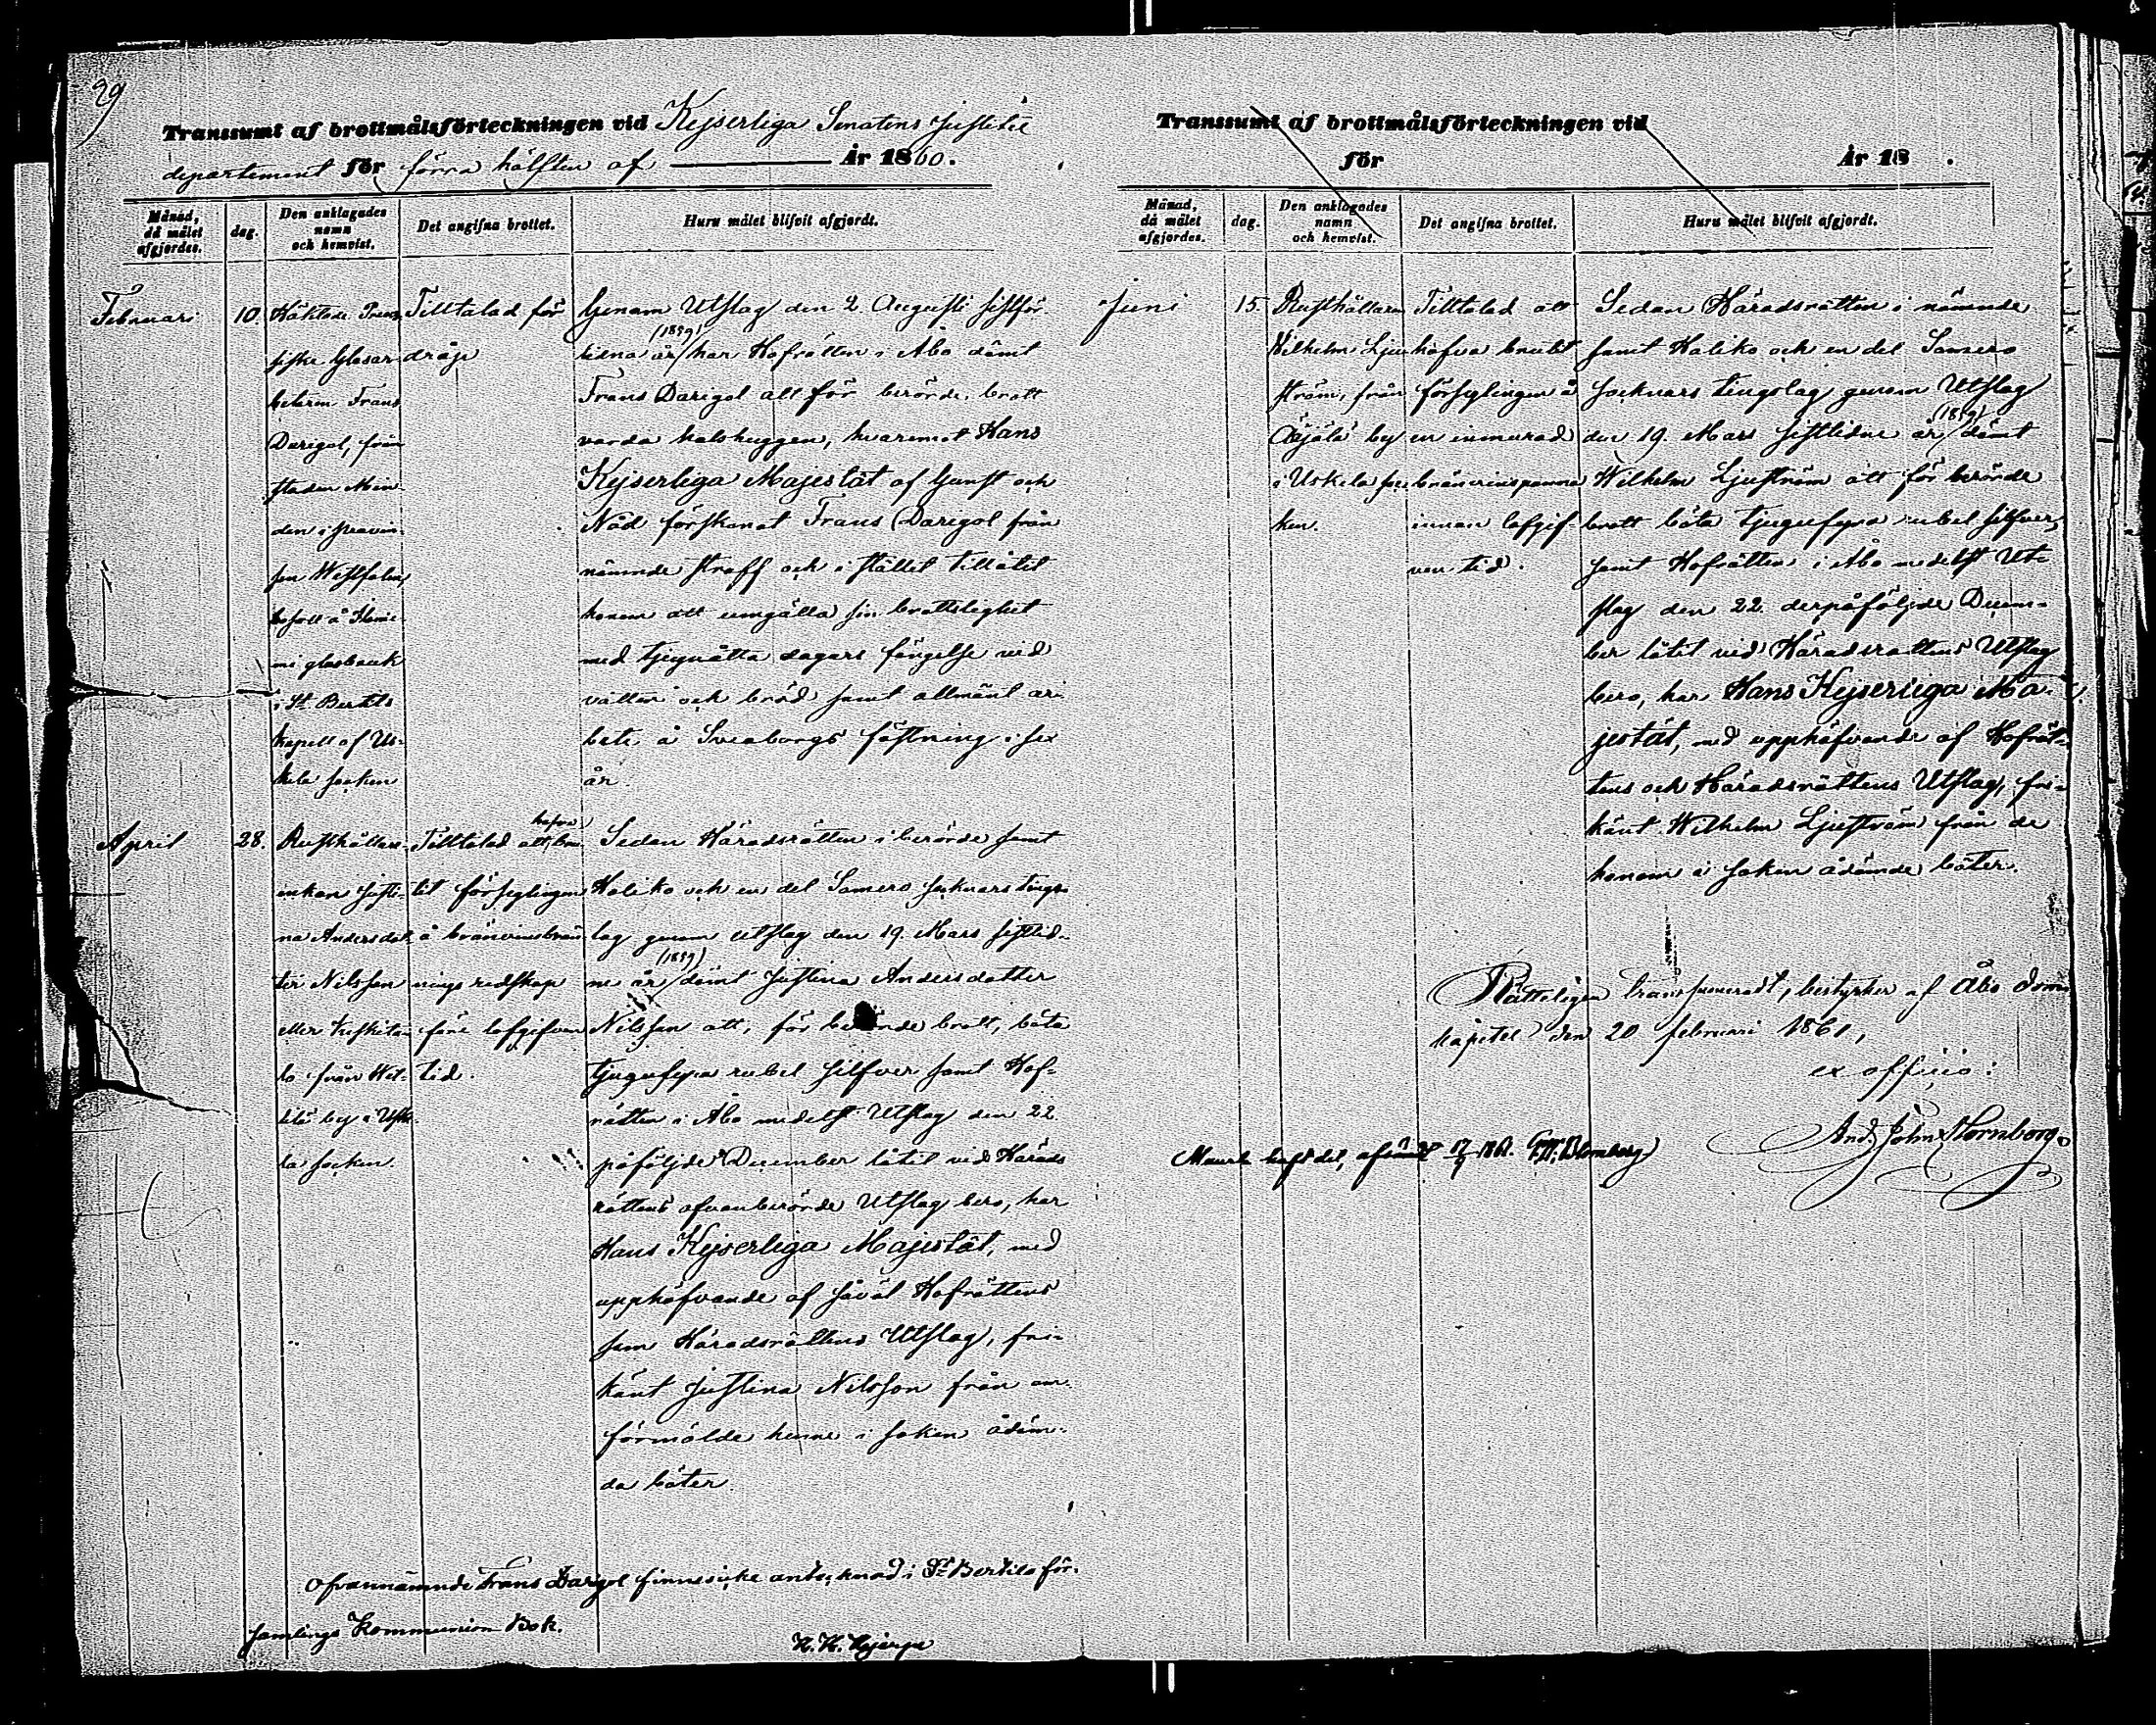 29
Transsumt af brottmålsförteckningen vid Kejserliga Senatens Justitie
departement för förra hälften af År 1860.
Månad, då målet afgjordes.
dag.
Den anklagades namn och hemvist.
Det angifna brottet.
Huru målet blifvit afgjordt.
Februari
10.
Häktade Preus
siske Glasar
betaren Frans
Darigol, från
staden Min
den i provin
sen Westfalen,
boside å
mi glasbruk
i St Bertils
kapell af Us-
kela socken
Tilltalad för
dråp
Genom Utslag den 2 Augusti sistför
lidna år (1859) har Hofrätten i Åbo dömt
Frans Darigol att för berörde brott
varda halshuggen, hvaremot Hans
Kejserliga Majestät af Gunst och
Nåd förskonat Frans Darigol från
nämnde straff och i stället tillåtit
honom att umgälla sin brottslighet
med tjuguåtta dagars fängelse vid
vatten och bröd samt allmänt ar-
bete å Sveaborgs fästning i sex
år.
April
28.
Rusthållare-
enkan Justi-
na Andersdot-
ter Nilsson
eller
la från
by i Uske
la socken.
Tilltalad att hafva bru-
tit förseglingen
å bränvinsbrän
nings redskap
före lofgifven
tid.
Sedan Häradsrätten i berörde samt
Haliko och en del Somero socknars tings
lag genom utslag den 19. Mars sistlid-
ne år (1859) dömt Justina Andersdotter
Nilsson att, för berörde brott, böta
tjugufyra rubel silfver samt Hof-
rätten i Åbo medelst Utslag den 22
påföljde December låtit vid Härads
rättens ofvanberörde Utslag bero, har
Hans Kejserliga Majestät, med
upphäfvande af såväl Hofrättens
som Häradsrättens Utslag, fri-
känt Justina Nilsson från an-
förmälde henne i saken ådöm-
da böter.
Ofvannämnde Frans Dargol finnes icke antecknad i St Bertils för-
samlings Kommunion Bok.
Transsumt af brottmålsförteckningen vid
för År 18 .
Månad, då målet afgjordes.
dag.
Den anklagades namn och hemvist.
Det angifna brottet.
Huru målet blifvit afgjordt.
Juni
15.
Rusthållaren
Wilhelm Lju
ström, från
by
i Uskela soc
ken.
Tilltalad att
hafva brutit
förseglingen å
en inmurad
bränvinspanna
innan lofgif-
ven tid.
Sedan Häradsrätten i nämnde
samt Haliko och en del Somero
socknars tingslag genom Utslag
den 19. Mars sistlidne år (1859) dömt
Wilhelm Ljuström att för berörde
brott böta tjugufyra rubel silfver,
samt Hofrätten i Åbo medelst Ut-
slag den 22. derpåföljde Decem-
ber låtit vid Häradsrättens Utslag
bero, har Hans Kejserliga Ma-
jestät, med upphäfvande af Hofrät-
tens och Häradsrättens Utslag, fri-
känt Wilhelm Ljuström från de
honom i saken ådömde böter.
Rätteligen transsumeradt, bestyrker af Åbo Dom-
kapitel den 20 februari 1861,
ex officio:
And. John Hornborg.